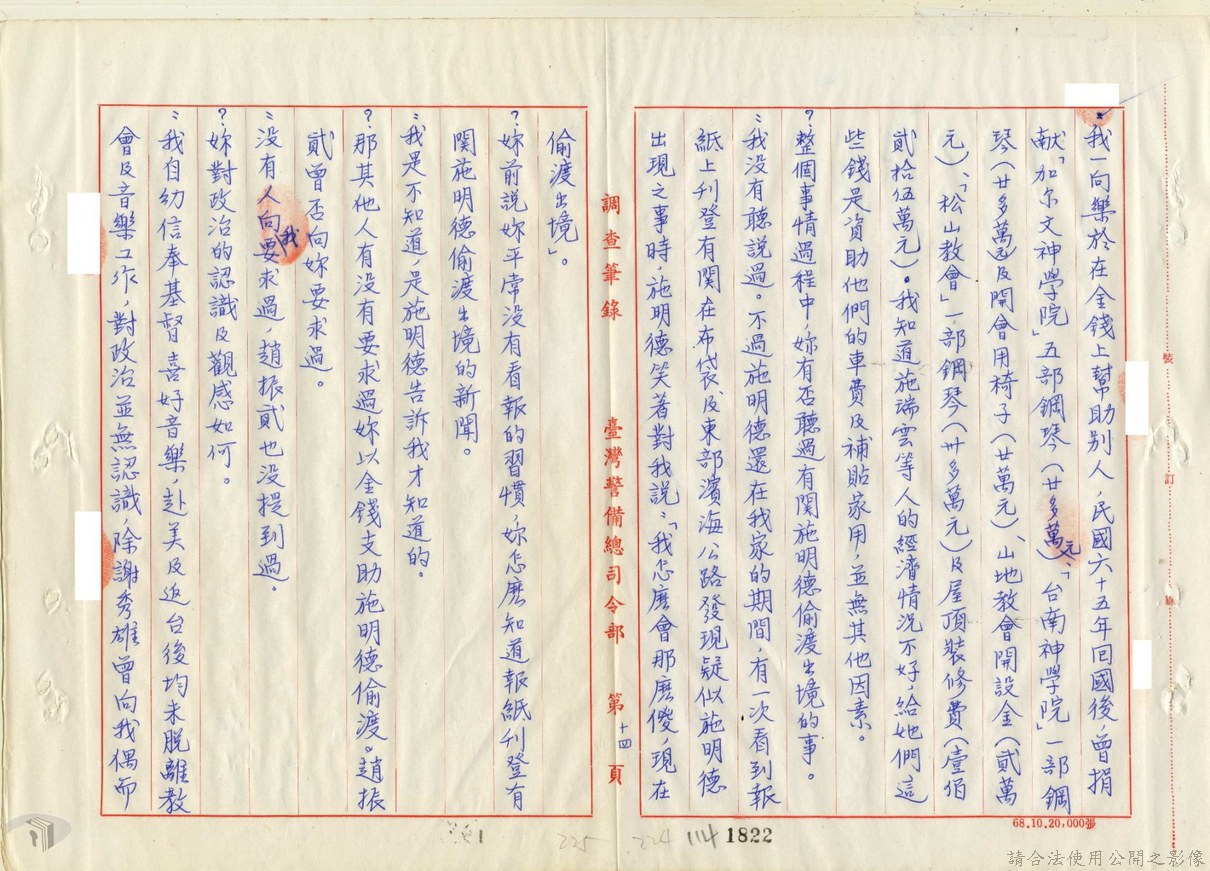 ：我一向樂於在金錢上幫助別人，民國六十五年回國後，曾捐
献「加尔文神學院」五部鋼琴（廿多萬元）、「台南神學院」一部鋼
琴（廿多萬元）及開會用椅子（廿萬元）、山地教會開設金（貳萬
元）、「松山教會」一部鋼琴（廿多萬元）及屋頂裝修費（壹佰
貳拾伍萬元）。我知道施瑞雲等人的經濟情況不好，給她們這
些錢是資助他們的車費及補貼家用，並無其他因素。
？整個事情過程中，妳有否聽過有関施明德偷渡出境的事。
：我没有聽說過。不過施明德還在我家的期間，有一次看到報
紙上刋登有関在布袋及東部濱海公路發現疑似施明德
出現之事時，施明德笑著對我說：「我怎麽會那麽傻，現在
調查筆錄 臺灣警備總司令部 第十四頁
偷渡出境」。
？妳前說妳平常没有看報的習慣，妳怎麽知道報紙刋登有
関施明德偷渡出境的新聞。
：我是不知道，是施明德告訴我才知道的。
？那其他人有没有要求過妳以金錢支助施明德偷渡。趙振
貳曾否向妳要求過。
：没有人向我要求過，趙振貳也没提到過。
？妳對政治的認識及觀感如何。
：我自幼信奉基督喜好音樂，赴美及返台後均未脫離教
會及音樂工作，對政治並無認識，除謝秀雄曾向我偶而
裝 訂 線
68.10.20,000張
225
224
114
1822
請合法使用公開之影像